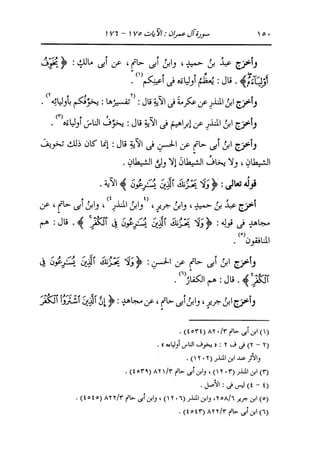 ١٥٠ سورة آل عمران : الآيات ١٧٥ - ١٧٦
وأخرج عبدُ بنُ حميدٍ ، وابنُ أبى حاتمٍ ، عن أبى مالكٍ : ﴿ يُخَوِّفُ
أَوْلِيَآءَهُۥ ﴾ . قال : يُعظِّمُ أولياءَه فى أعينِكم(١) .
وأخرج ابنُ المنذرِ عن عكرمةَ فى الآيةِ قال : (٢تفسيرُها : يخوِّفُكم بأوليائِه٢) .
وأخرج ابنُ المنذرِ عن إبراهيمَ فى الآيةِ قال : يخوِّفُ الناسَ أولياءَه(٣) .
وأخرج ابنُ أبى حاتمٍ عن الحسنِ فى الآيةِ قال : إنما كان ذلك تخويفَ
الشيطانِ ، ولا يخافُ الشيطانَ إلا ولىُّ الشيطانِ .
قولُه تعالى : ﴿ وَلَا يَحْزُنكَ ٱلَّذِينَ يُسَـٰرِعُونَ ﴾ الآية .
أخرَج عبدُ بنُ حميدٍ ، وابنُ جريرٍ ، (٤وابنُ المنذرِ٤) ، وابنُ أبى حاتمٍ ، عن
مجاهدٍ فى قولِه : ﴿ وَلَا يَحْزُنكَ ٱلَّذِينَ يُسَـٰرِعُونَ فِى ٱلْكُفْرِ ﴾ . قال : هم
المنافقون(٥) .
وأخرج ابنُ أبى حاتمٍ عن الحسنِ : ﴿ وَلَا يَحْزُنكَ ٱلَّذِينَ يُسَـٰرِعُونَ فِى
ٱلْكُفْرِ ﴾ . قال : هم الكفارُ(٦) .
وأخرج ابنُ جريرٍ ، وابنُ أبى حاتمٍ ، عن مجاهدٍ : ﴿ إِنَّ ٱلَّذِينَ ٱشْتَرَوُا۟ ٱلْكُفْرَ
(١) ابن أبى حاتم ٨٢٠/٣ (٤٥٣٤) .
(٢ - ٢) فى ف ٢ : « يخوف الناس أولياءه » .
والأثر عند ابن المنذر (١٢٠٢) .
(٣) ابن المنذر (١٢٠٣) ، وابن أبى حاتم ٨٢١/٣ (٤٥٣٩) .
(٤ - ٤) ليس فى : الأصل .
(٥) ابن جرير ٢٥٨/٦، وابن المنذر (١٢٠٦) ، وابن أبى حاتم ٨٢٢/٣ (٤٥٤٥) .
(٦) ابن أبى حاتم ٨٢٢/٣ (٤٥٤٣) .